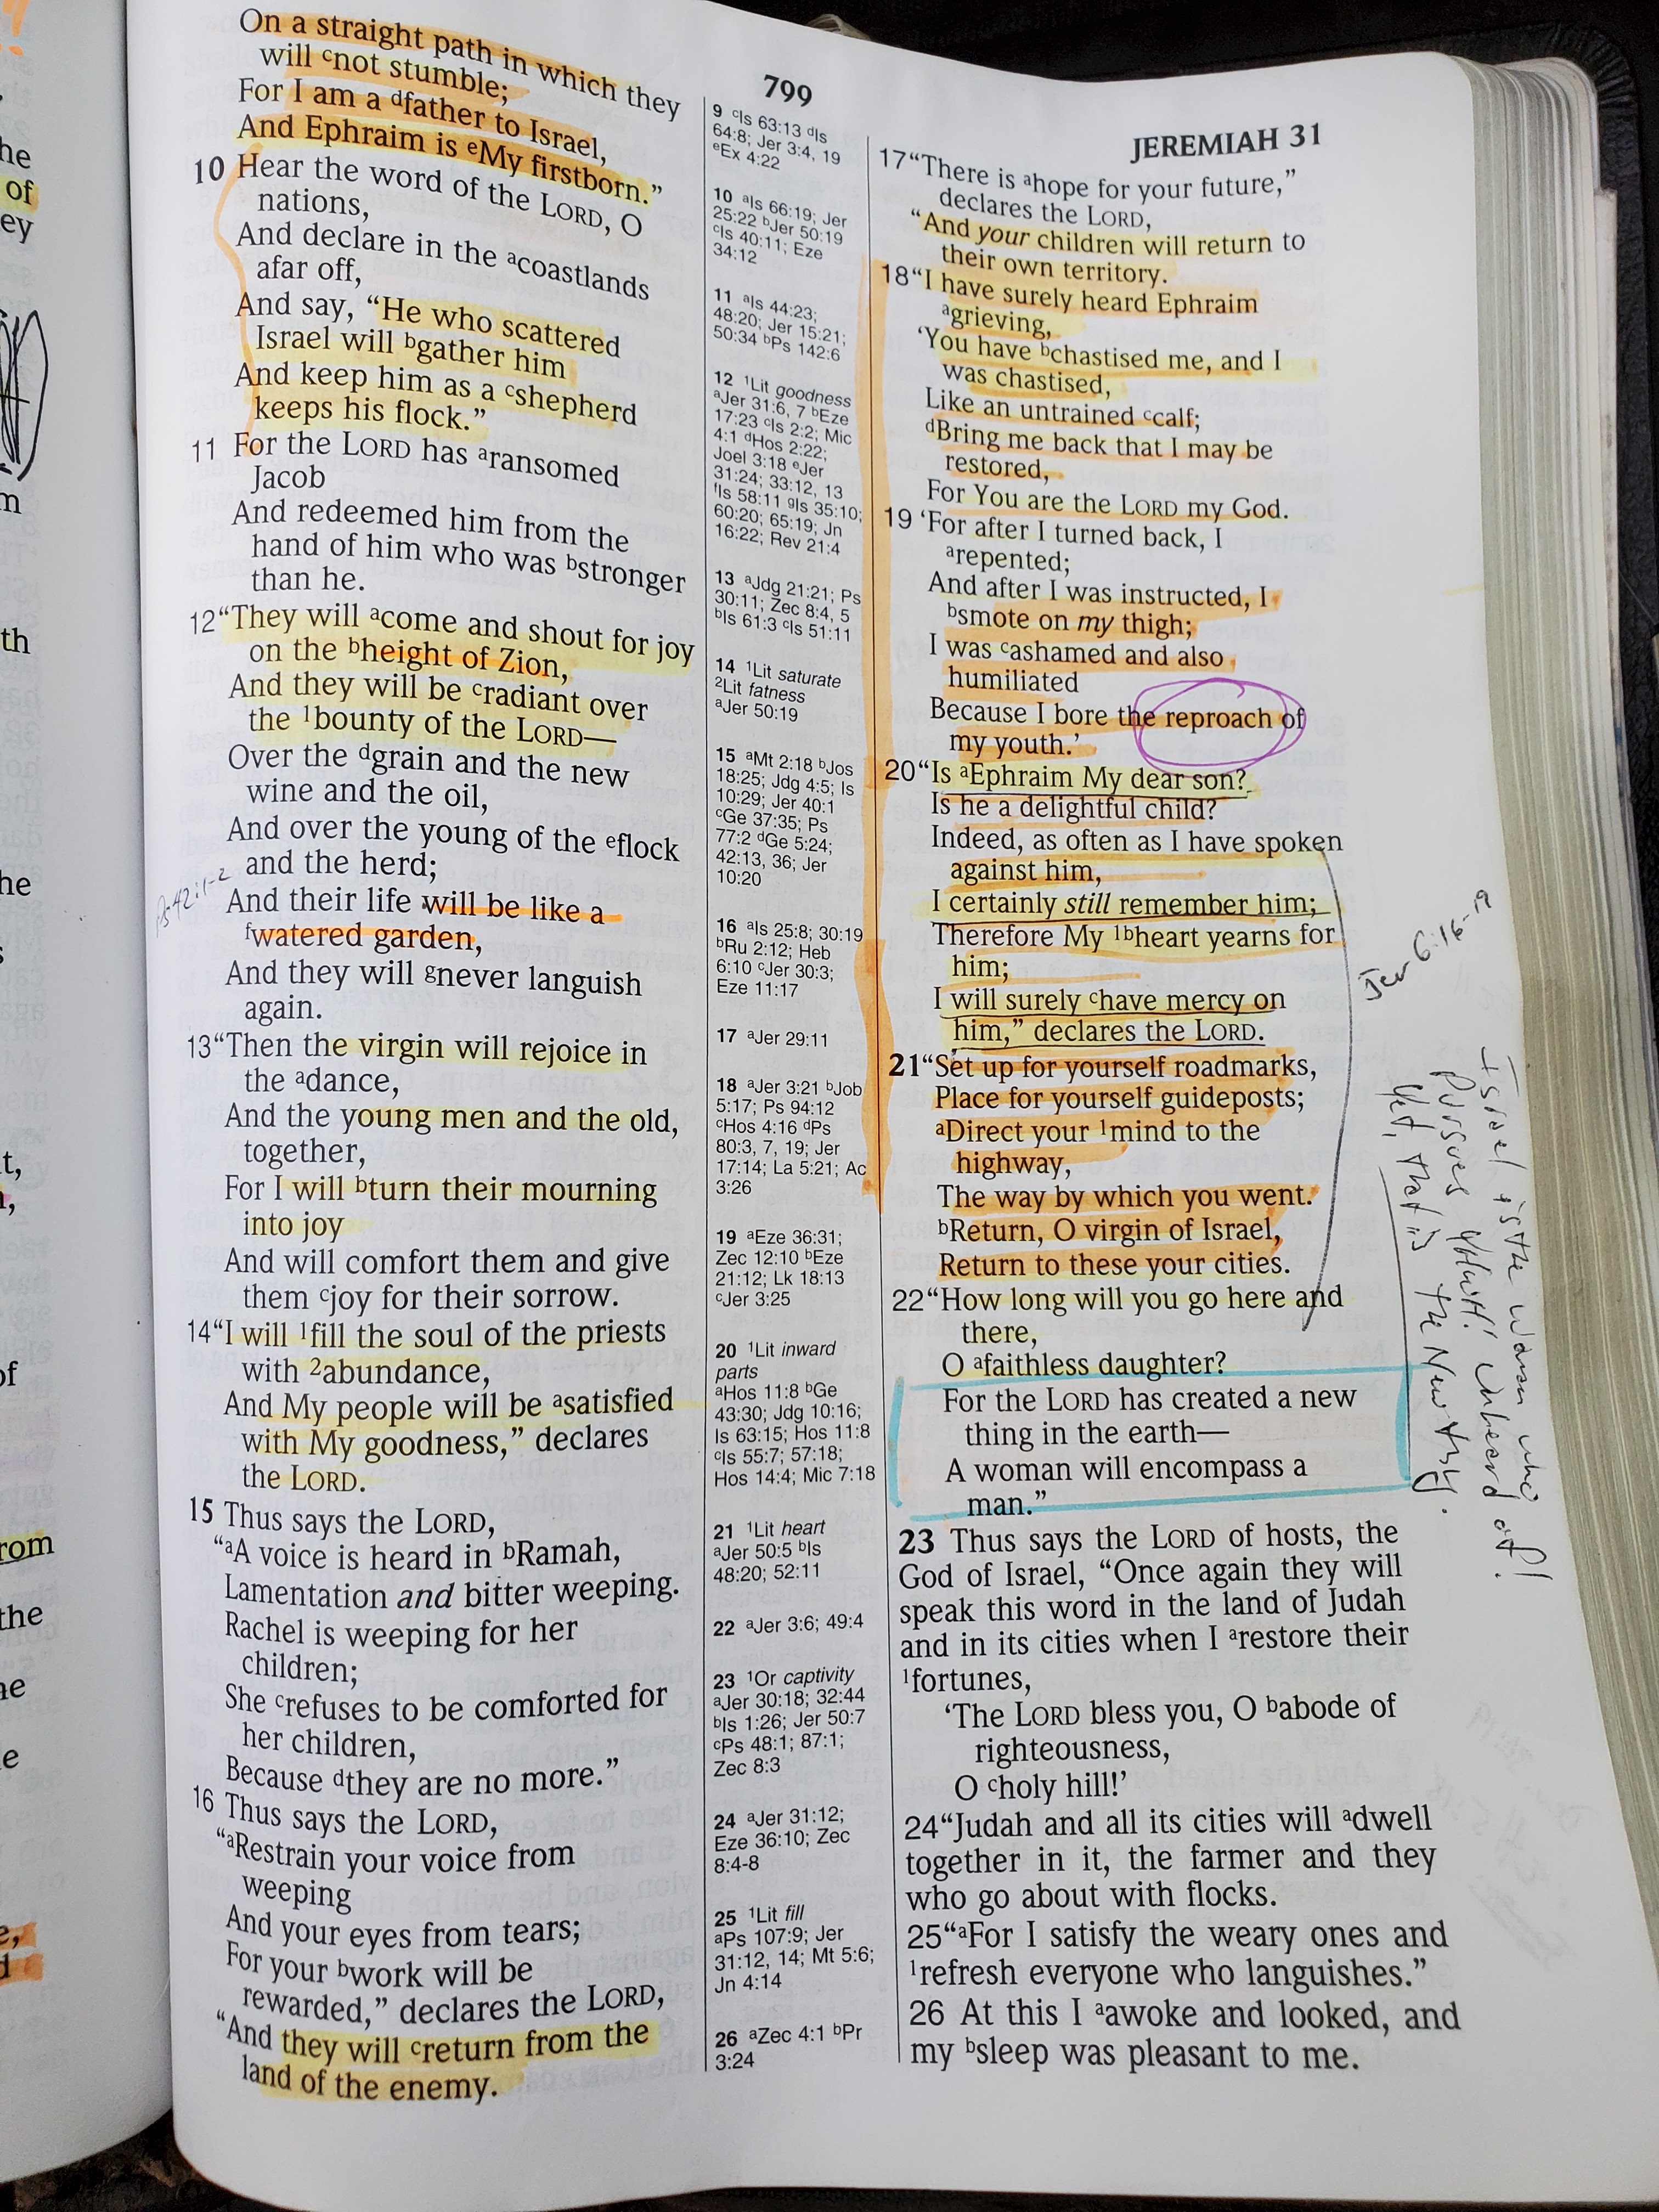 On a straight path in which they
will cnot stumble;
For I am a dfather to Israel,
And Ephraim is eMy firstborn.”
10 Hear the word of the LORD, O
nations,
And declare in the acoastlands
afar off,
And say, “He who scattered
Israel will bgather him
And keep him as a cshepherd
keeps his flock.”
11 For the LORD has aransomed
Jacob
And redeemed him from the
hand of him who was bstronger
than he.
12 “They will acome and shout for joy
on the bheight of Zion,
And they will be cradiant over
the 1bounty of the LORD—
Over the dgrain and the new
wine and the oil,
And over the young of the eflock
and the herd;
And their life will be like a
fwatered garden,
And they will gnever languish
again.
13 “Then the virgin will rejoice in
the adance,
And the young men and the old,
together,
For I will bturn their mourning
into joy
And will comfort them and give
them cjoy for their sorrow.
14 “I will 1fill the soul of the priests
with 2abundance,
And My people will be asatisfied
with My goodness,” declares
the LORD.
15 Thus says the LORD,
“aA voice is heard in bRamah,
Lamentation and bitter weeping.
Rachel is weeping for her
children;
She crefuses to be comforted for
her children,
Because dthey are no more.”
16 Thus says the LORD,
“aRestrain your voice from
weeping
And your eyes from tears;
For your bwork will be
rewarded,” declares the LORD,
“And they will creturn from the
land of the enemy.
Ps 42:1-2
799
9 cIs 63:13 dIs
64:8; Jer 3:4, 19
eEx 4:22
10 aIs 66:19; Jer
25:22 bJer 50:19
cIs 40:11; Eze
34:12
11 aIs 44:23;
48:20; Jer 15:21;
50:34 bPs 142:6
12 1Lit goodness
aJer 31:6, 7 bEze
17:23 cIs 2:2; Mic
4:1 dHos 2:22;
Joel 3:18 eJer
31:24; 33:12, 13
fIs 58:11 gIs 35:10;
60:20; 65:19; Jn
16:22; Rev 21:4
13 aJdg 21:21; Ps
30:11; Zec 8:4, 5
bIs 61:3 cIs 51:11
14 1Lit saturate
2Lit fatness
aJer 50:19
15 aMt 2:18 bJos
18:25; Jdg 4:5; Is
10:29; Jer 40:1
cGe 37:35; Ps
77:2 dGe 5:24;
42:13, 36; Jer
10:20
16 aIs 25:8; 30:19
bRu 2:12; Heb
6:10 cJer 30:3;
Eze 11:17
17 aJer 29:11
18 aJer 3:21 bJob
5:17; Ps 94:12
cHos 4:16 dPs
80:3, 7, 19; Jer
17:14; La 5:21; Ac
3:26
19 aEze 36:31;
Zec 12:10 bEze
21:12; Lk 18:13
cJer 3:25
20 1Lit inward
parts
aHos 11:8 bGe
43:30; Jdg 10:16;
Is 63:15; Hos 11:8
cIs 55:7; 57:18;
Hos 14:4; Mic 7:18
21 1Lit heart
aJer 50:5 bIs
48:20; 52:11
22 aJer 3:6; 49:4
23 1Or captivity
aJer 30:18; 32:44
bIs 1:26; Jer 50:7
cPs 48:1; 87:1;
Zec 8:3
24 aJer 31:12;
Eze 36:10; Zec
8:4-8
25 1Lit fill
aPs 107:9; Jer
31:12, 14; Mt 5:6;
Jn 4:14
26 aZec 4:1 bPr
3:24
JEREMIAH 31
17 “There is ahope for your future,”
declares the LORD,
“And your children will return to
their own territory.
18 “I have surely heard Ephraim
agrieving,
‘You have bchastised me, and I
was chastised,
Like an untrained ccalf;
dBring me back that I may be
restored,
For You are the LORD my God.
19 ‘For after I turned back, I
arepented;
And after I was instructed, I
bsmote on my thigh;
I was cashamed and also
humiliated
Because I bore the reproach of
my youth.’
20 “Is aEphraim My dear son?
Is he a delightful child?
Indeed, as often as I have spoken
against him,
I certainly still remember him;
Therefore My 1bheart yearns for
him;
I will surely chave mercy on
him,” declares the LORD.
21 “Set up for yourself roadmarks,
Place for yourself guideposts;
aDirect your 1mind to the
highway,
The way by which you went.
bReturn, O virgin of Israel,
Return to these your cities.
22 “How long will you go here and
there,
O afaithless daughter?
For the LORD has created a new
thing in the earth—
A woman will encompass a
man.”
23 Thus says the LORD of hosts, the
God of Israel, “Once again they will
speak this word in the land of Judah
and in its cities when I arestore their
1fortunes,
‘The LORD bless you, O babode of
righteousness,
O choly hill!’
24 “Judah and all its cities will adwell
together in it, the farmer and they
who go about with flocks.
25 “aFor I satisfy the weary ones and
1refresh everyone who languishes.”
26 At this I aawoke and looked, and
my bsleep was pleasant to me.
Jer 6:16-19
Israel is the woman who
pursues YHWH! Unheard of!
Yet, that is the New thing.
he
of
ey
m
th
he
t,
of
rom
the
ne
e